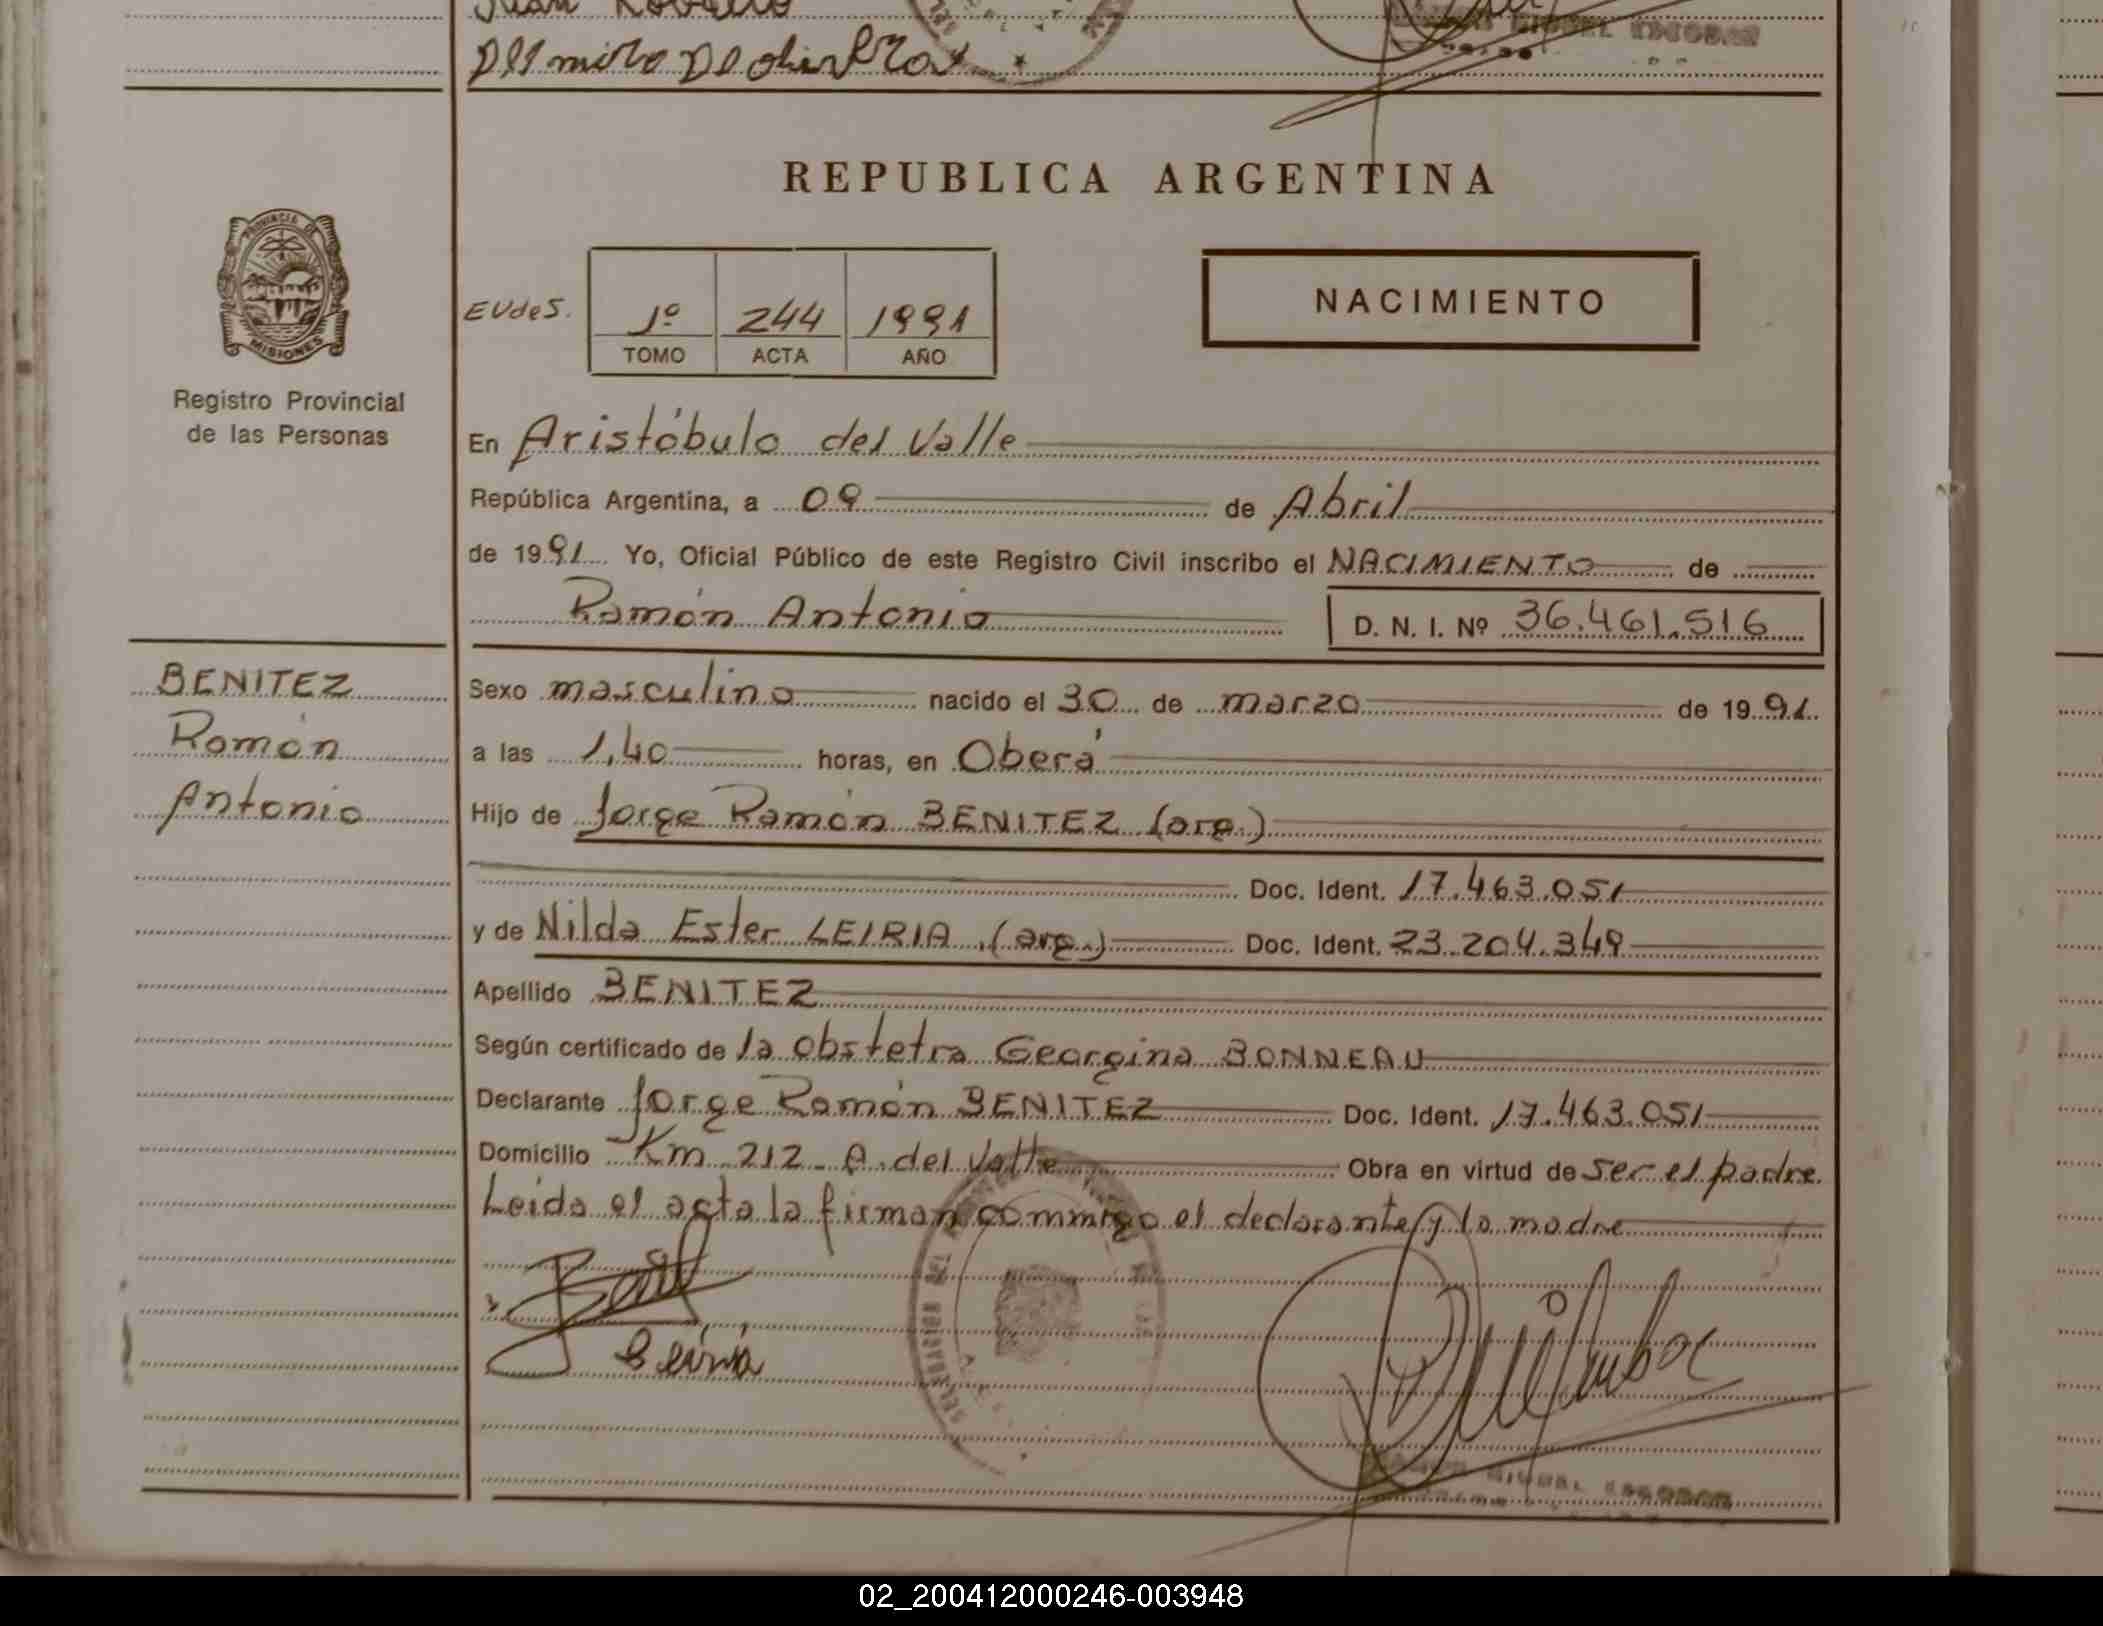 Juan
REPUBLICA ARGENTINA
PROVINCIA DE
MISIONES
Registro Provincial
de las Personas
EVdeS.
1º 244 1991
TOMO ACTA AÑO
NACIMIENTO
En Aristóbulo del Valle
República Argentina, a 09 de Abril
de 1991 Yo, Oficial Público de este Registro Civil inscribo el NACIMIENTO de
Ramón Antonio D. N. I. Nº 36.461.516
BENITEZ
Ramón
Antonio
Sexo masculino nacido el 30 de marzo de 1991.
a las 1,40 horas, en Oberá
Hijo de Jorge Ramón BENITEZ (arg.)
Doc. Ident. 17.463.051
y de Nilda Ester LEIRIA (arg.) Doc. Ident. 23.204.349
Apellido BENITEZ
Según certificado de la obstetra Georgina BONNEAU
Declarante Jorge Ramón BENITEZ Doc. Ident. 17.463.051
Domicilio Km 212 - A. del Valle Obra en virtud de ser el padre.
Leida el acta la firman commigo el declarante y la madre
MIGUEL ESCOBAR
02_200412000246-003948